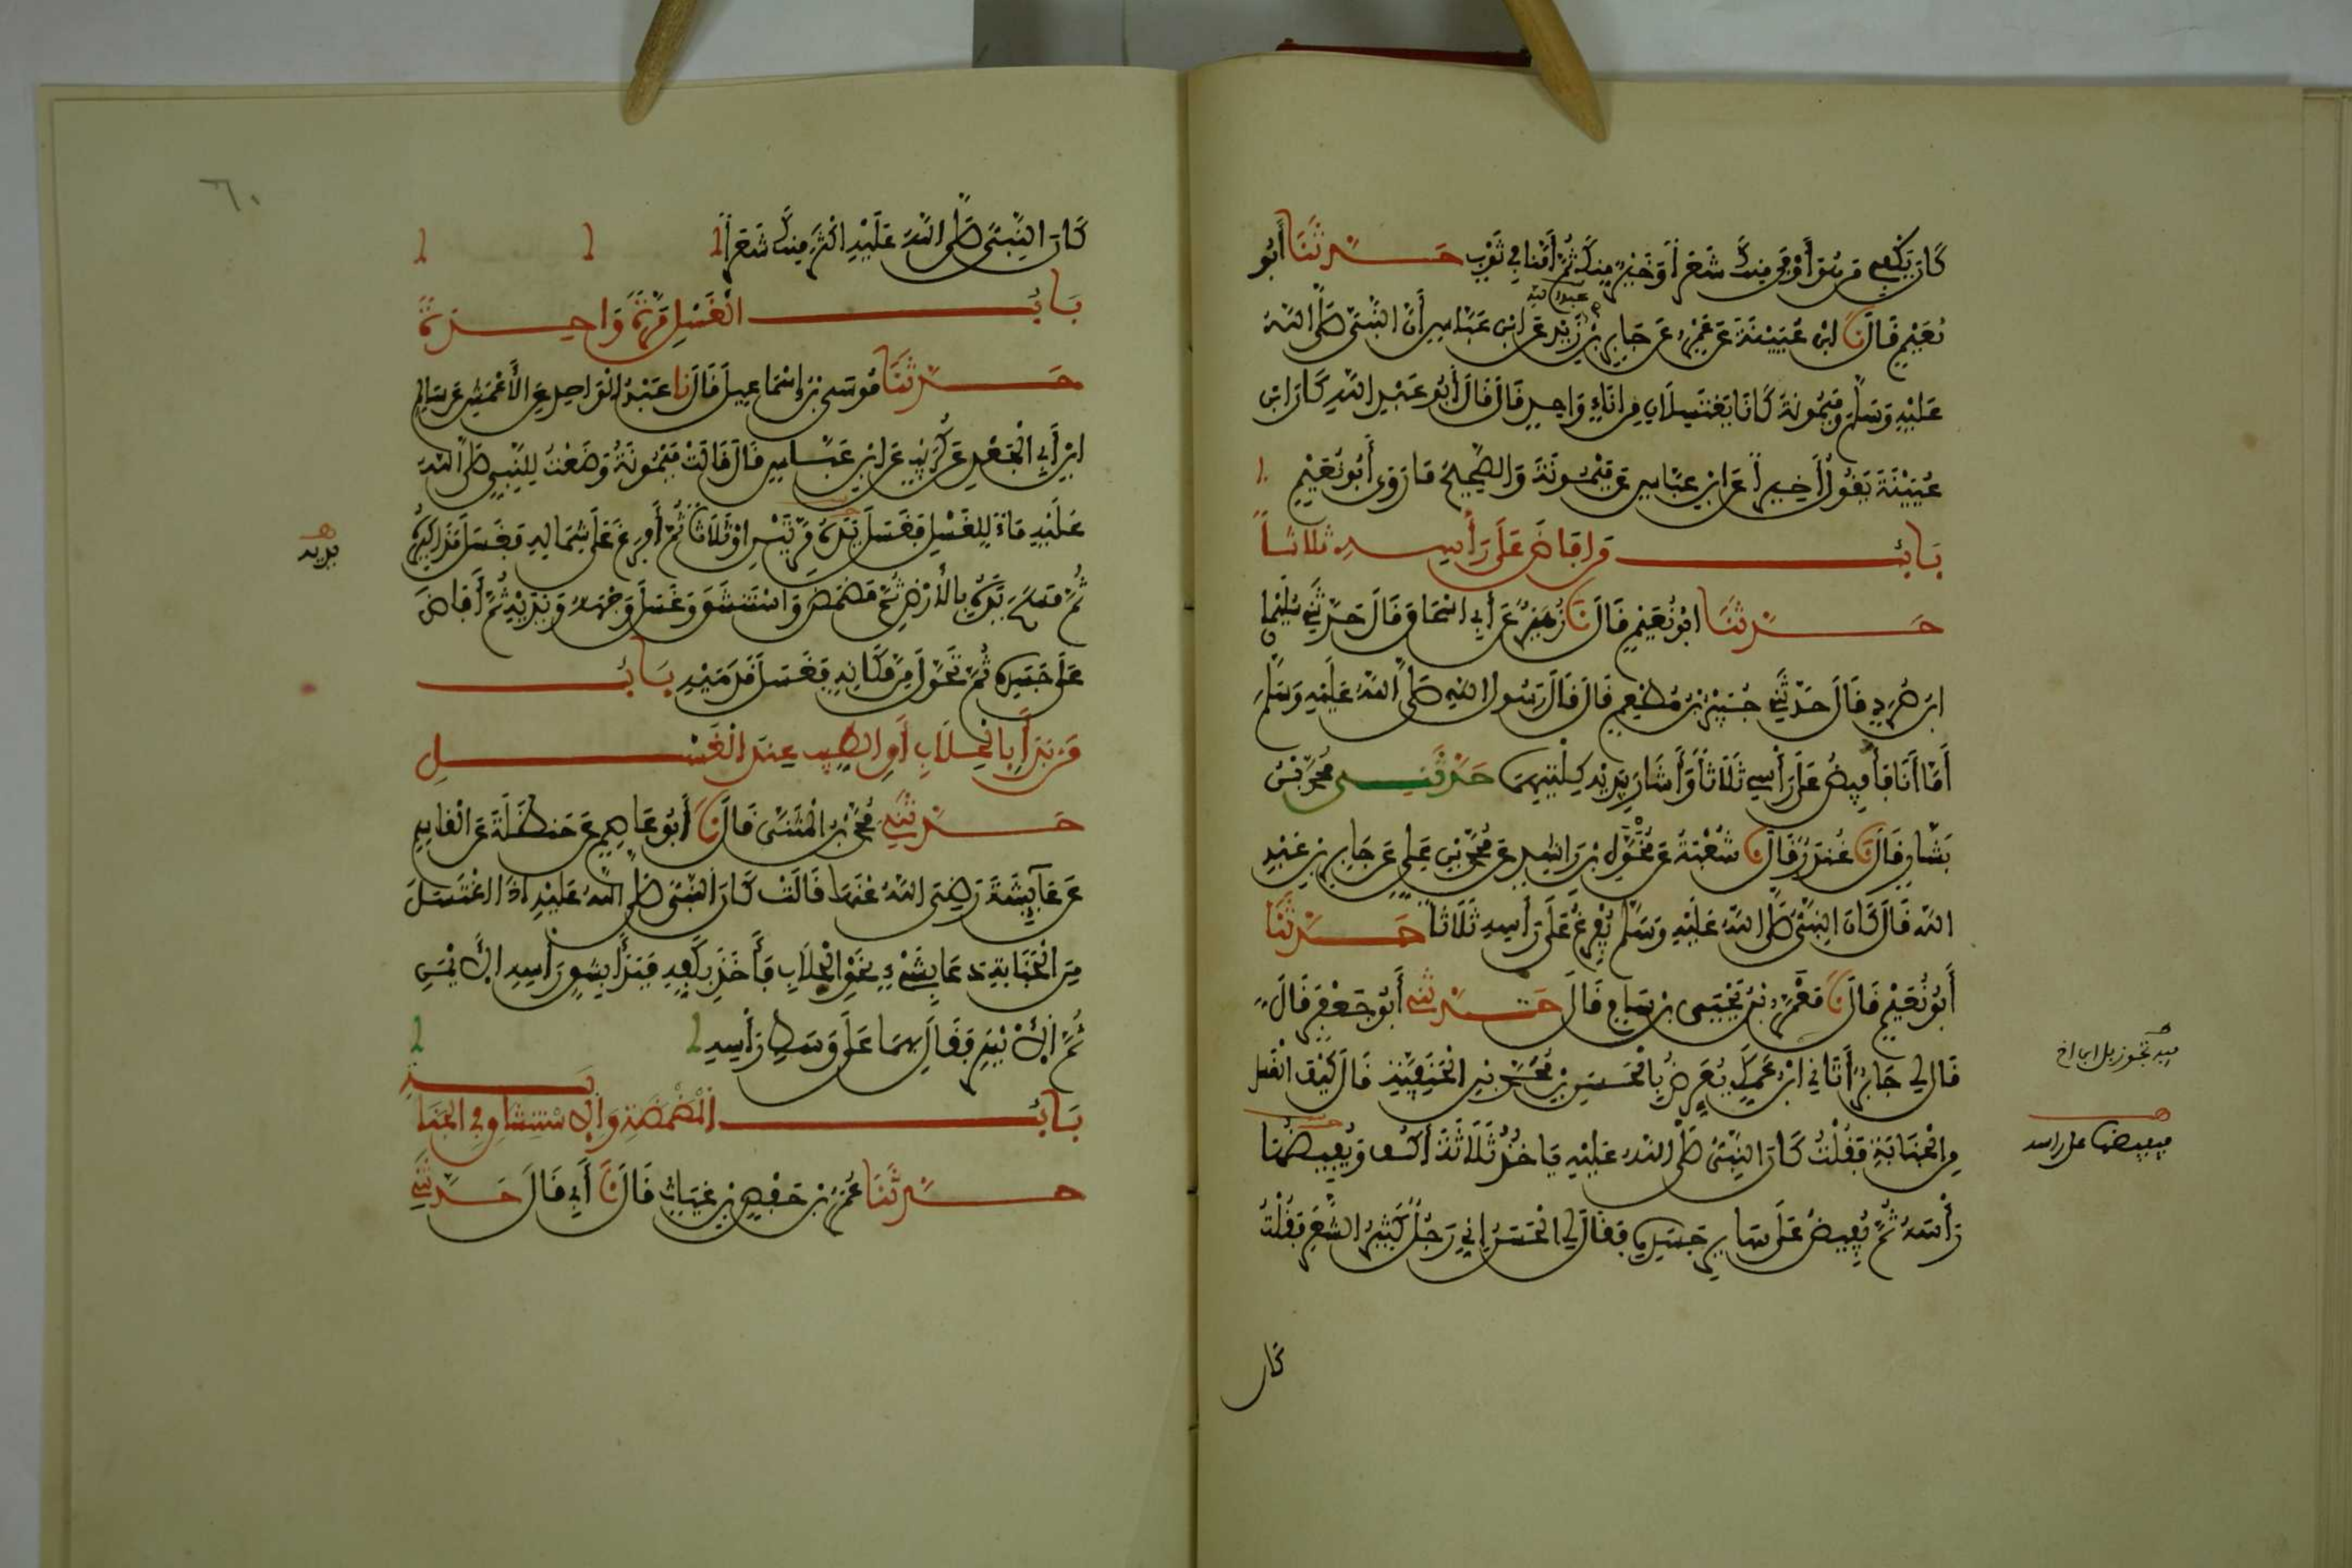 كَانَ يَكْفِي مَنْ هُوَ أَوْفَى مِنْكَ شَعَرًا أَوْ خَيْرٌ مِنْكَ ثُمَّ أَمَّنَا فِي ثَوْبٍ حَدَّثَنَا أَبُو
نُعَيْمٍ قَالَ نَا ابْنُ عُيَيْنَةَ عَنْ عَمْرٍو عَنْ جَابِرِ بْنِ زَيْدٍ عَنِ ابْنِ عَبَّاسٍ أَنَّ النَّبِيَّ صَلَّى اللَّهُ
عَلَيْهِ وَسَلَّمَ وَمَيْمُونَةَ كَانَا يَغْتَسِلَانِ مِنْ إِنَاءٍ وَاحِدٍ قَالَ قَالَ أَبُو عَبْدِ اللَّهِ كَانَ ابْنُ
عُيَيْنَةَ يَقُولُ أَخِيرًا عَنِ ابْنِ عَبَّاسٍ عَنْ مَيْمُونَةَ وَالصَّحِيحُ مَا رَوَى أَبُو نُعَيْمٍ
بَابُ مَنْ أَفَاضَ عَلَى رَأْسِهِ ثَلَاثًا
حَدَّثَنَا أَبُو نُعَيْمٍ قَالَ نَا زُهَيْرٌ عَنْ أَبِي إِسْحَاقَ قَالَ حَدَّثَنِي سُلَيْمَانُ
ابْنُ صُرَدٍ قَالَ حَدَّثَنِي جُبَيْرُ بْنُ مُطْعِمٍ قَالَ قَالَ رَسُولُ اللَّهِ صَلَّى اللَّهُ عَلَيْهِ وَسَلَّمَ
أَمَّا أَنَا فَأُفِيضُ عَلَى رَأْسِي ثَلَاثًا وَأَشَارَ بِيَدَيْهِ كِلْتَيْهِمَا حَدَّثَنِي مُحَمَّدُ بْنُ
بَشَّارٍ قَالَ نَا غُنْدَرٌ قَالَ نَا شُعْبَةُ عَنْ مُخَوَّلِ بْنِ رَاشِدٍ عَنْ مُحَمَّدِ بْنِ عَلِيٍّ عَنْ جَابِرِ بْنِ عَبْدِ
اللَّهِ قَالَ كَانَ النَّبِيُّ صَلَّى اللَّهُ عَلَيْهِ وَسَلَّمَ يُفْرِغُ عَلَى رَأْسِهِ ثَلَاثًا حَدَّثَنَا
أَبُو نُعَيْمٍ قَالَ نَا مَعْمَرُ بْنُ يَحْيَى بْنِ سَامٍ قَالَ حَدَّثَنِي أَبُو جَعْفَرٍ قَالَ
قَالَ لِي جَابِرٌ أَتَانِي ابْنُ عَمِّكَ يُعَرِّضُ بِالْحَسَنِ بْنِ مُحَمَّدِ بْنِ الْحَنَفِيَّةِ قَالَ كَيْفَ الْغُسْلُ
مِنَ الْجَنَابَةِ فَقُلْتُ كَانَ النَّبِيُّ صَلَّى اللَّهُ عَلَيْهِ يَأْخُذُ ثَلَاثَةَ أَكُفٍّ وَيُفِيضُهَا
رَأْسَهُ ثُمَّ يُفِيضُ عَلَى سَائِرِ جَسَدِهِ فَقَالَ لِي الْحَسَنُ إِنِّي رَجُلٌ كَثِيرُ الشَّعَرِ فَقُلْتُ
كان
فيفيضها على راسه
كَانَ النَّبِيُّ صَلَّى اللَّهُ عَلَيْهِ أَكْثَرَ مِنْكَ شَعَرًا
بَابُ الْغُسْلِ مَرَّةً وَاحِدَةً
حَدَّثَنَا مُوسَى بْنُ إِسْمَاعِيلَ قَالَ نَا عَبْدُ الْوَاحِدِ عَنِ الْأَعْمَشِ عَنْ سَالِمِ
ابْنِ أَبِي الْجَعْدِ عَنْ كُرَيْبٍ عَنِ ابْنِ عَبَّاسٍ قَالَ قَالَتْ مَيْمُونَةُ وَضَعْتُ لِلنَّبِيِّ صَلَّى اللَّهُ
عَلَيْهِ مَاءً لِلْغُسْلِ فَغَسَلَ يَدَهُ مَرَّتَيْنِ أَوْ ثَلَاثًا ثُمَّ أَفْرَغَ عَلَى شِمَالِهِ فَغَسَلَ مَذَاكِيرَهُ
ثُمَّ مَسَحَ يَدَهُ بِالْأَرْضِ ثُمَّ مَضْمَضَ وَاسْتَنْشَقَ وَغَسَلَ وَجْهَهُ وَيَدَيْهِ ثُمَّ أَفَاضَ
عَلَى جَسَدِهِ ثُمَّ تَحَوَّلَ مِنْ مَكَانِهِ فَغَسَلَ قَدَمَيْهِ بَابُ
مَنْ بَدَأَ بِالْحِلَابِ أَوِ الطِّيبِ عِنْدَ الْغُسْلِ
حَدَّثَنِي مُحَمَّدُ بْنُ الْمُثَنَّى قَالَ نَا أَبُو عَاصِمٍ عَنْ حَنْظَلَةَ عَنِ الْقَاسِمِ
عَنْ عَائِشَةَ رَضِيَ اللَّهُ عَنْهَا قَالَتْ كَانَ النَّبِيُّ صَلَّى اللَّهُ عَلَيْهِ إِذَا اغْتَسَلَ
مِنَ الْجَنَابَةِ دَعَا بِشَيْءٍ نَحْوِ الْحِلَابِ فَأَخَذَ بِكَفِّهِ فَبَدَأَ بِشِقِّ رَأْسِهِ الْأَيْمَنِ
ثُمَّ الْأَيْسَرِ فَقَالَ بِهِمَا عَلَى وَسَطِ رَأْسِهِ
بَابُ الْمَضْمَضَةِ وَالِاسْتِنْشَاقِ فِي الْجَنَابَةِ
حَدَّثَنَا عُمَرُ بْنُ حَفْصِ بْنِ غِيَاثٍ قَالَ نَا أَبِي قَالَ حَدَّثَنِي
يديه
٦٠